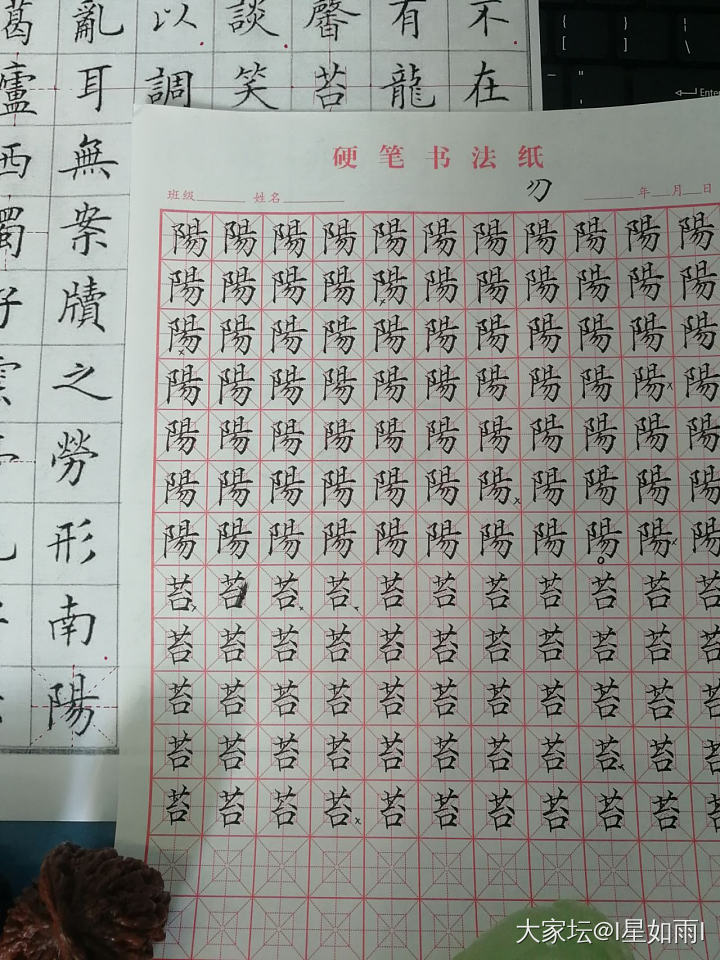 不在
有龍
馨苔
談笑
以調
亂耳無案牘之勞形南陽
葛廬西蜀
{ } |
[ ] \
"
Enter
硬笔书法纸
班级 姓名 年 月 日
陽陽陽陽陽陽陽陽陽陽陽
陽陽陽陽陽陽陽陽陽陽陽
陽陽陽陽陽陽陽陽陽陽陽
陽陽陽陽陽陽陽陽陽陽陽
陽陽陽陽陽陽陽陽陽陽陽
陽陽陽陽陽陽陽陽陽陽陽
陽陽陽陽陽陽陽陽陽陽陽
苔苔苔苔苔苔苔苔苔苔苔
苔苔苔苔苔苔苔苔苔苔苔
苔苔苔苔苔苔苔苔苔苔苔
苔苔苔苔苔苔苔苔苔苔苔
苔苔苔苔苔苔苔苔苔苔苔
大家坛@I星如雨I